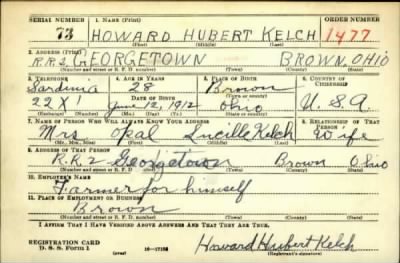 SERIAL NUMBER 1. NAME (Print) ORDER NUMBER
73 HOWARD HUBERT KELCH 1477
(First) (Middle) (Last)
2. ADDRESS (Print)
R.R.2 GEORGETOWN BROWN, OHIO
(Number and street or R. F. D. number) (Town) (County) (State)
3. TELEPHONE 4. AGE IN YEARS 5. PLACE OF BIRTH 6. COUNTRY OF CITIZENSHIP
Sardinia 28 Brown
DATE OF BIRTH
22X1 June 12, 1912 Ohio U.S.A.
(Exchange) (Number) (Mo.) (Day) (Yr.) (State or country)
7. NAME OF PERSON WHO WILL ALWAYS KNOW YOUR ADDRESS 8. RELATIONSHIP OF THAT PERSON
Mrs. Opal Lucille Kelch Wife
(Mr., Mrs., Miss) (First) (Middle) (Last)
9. ADDRESS OF THAT PERSON
R.R.2 Georgetown Brown Ohio
(Number and street or R. F. D. number) (Town) (County) (State)
10. EMPLOYER'S NAME
Farmer for himself
11. PLACE OF EMPLOYMENT OR BUSINESS
Brown
(Number and street or R. F. D. number) (Town) (County) (State)
I AFFIRM THAT I HAVE VERIFIED ABOVE ANSWERS AND THAT THEY ARE TRUE.
REGISTRATION CARD
D. S. S. Form 1 (over) Howard Hubert Kelch
(Registrant's signature)